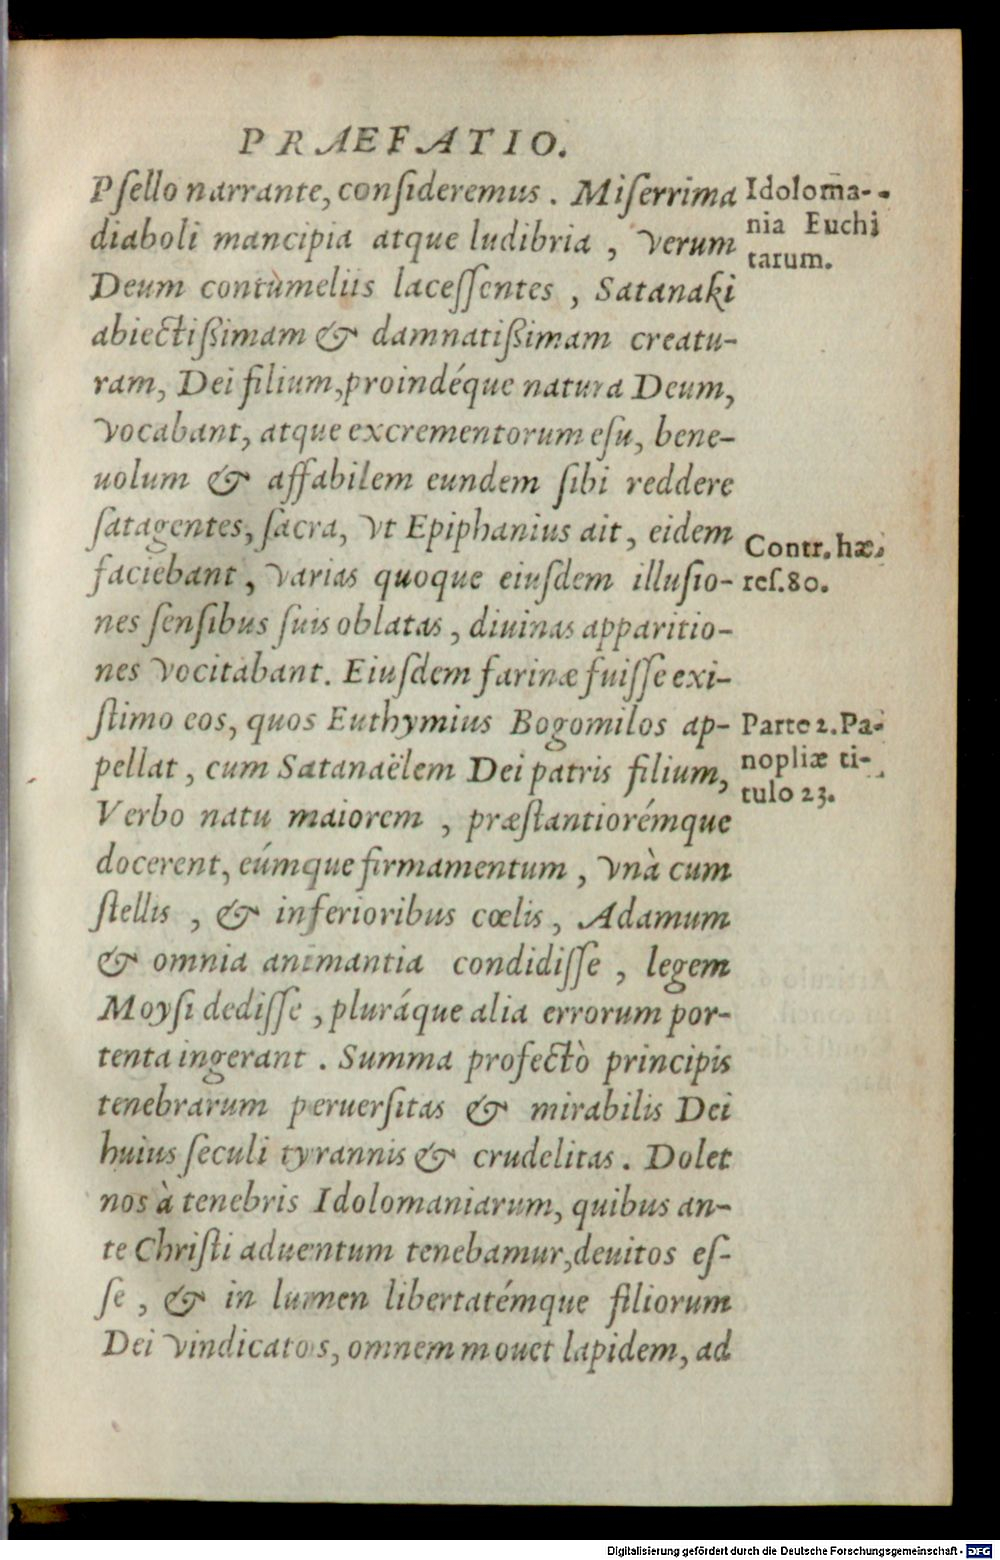 PRAEFATIO.
Pſello narrante, conſideremus. Miſerrima
diaboli mancipia atque ludibria, verum
Deum contumeliis laceſſentes, Satanaki
abiectiſsimam & damnatiſsimam creatu-
ram, Dei filium, proindéque natura Deum,
vocabant, atque excrementorum eſu, bene-
uolum & affabilem eundem ſibi reddere
ſatagentes, ſacra, vt Epiphanius ait, eidem
faciebant, varias quoque eiuſdem illuſio-
nes ſenſibus ſuis oblatas, diuinas apparitio-
nes vocitabant. Eiuſdem farinæ fuiſſe exi-
ſtimo eos, quos Euthymius Bogomilos ap-
pellat, cum Satanaëlem Dei patris filium,
Verbo natu maiorem, præſtantiorémque
docerent, eúmque firmamentum, vnà cum
ſtellis, & inferioribus cœlis, Adamum
& omnia animantia condidiſſe, legem
Moyſi dediſſe, pluráque alia errorum por-
tenta ingerant. Summa profectò principis
tenebrarum peruerſitas & mirabilis Dei
huius ſeculi tyrannis & crudelitas. Dolet
nos à tenebris Idolomaniarum, quibus an-
te Chriſti aduentum tenebamur, deuitos eſ-
ſe, & in lumen libertatémque filiorum
Dei vindicatos, omnem mouet lapidem, ad
Idolomā-
nia Euchi
tarum.
Contr. hæ-
reſ. 80.
Parte 2. Pa-
nopliæ ti-
tulo 23.
Digitalisierung gefördert durch die Deutsche Forschungsgemeinschaft - DFG